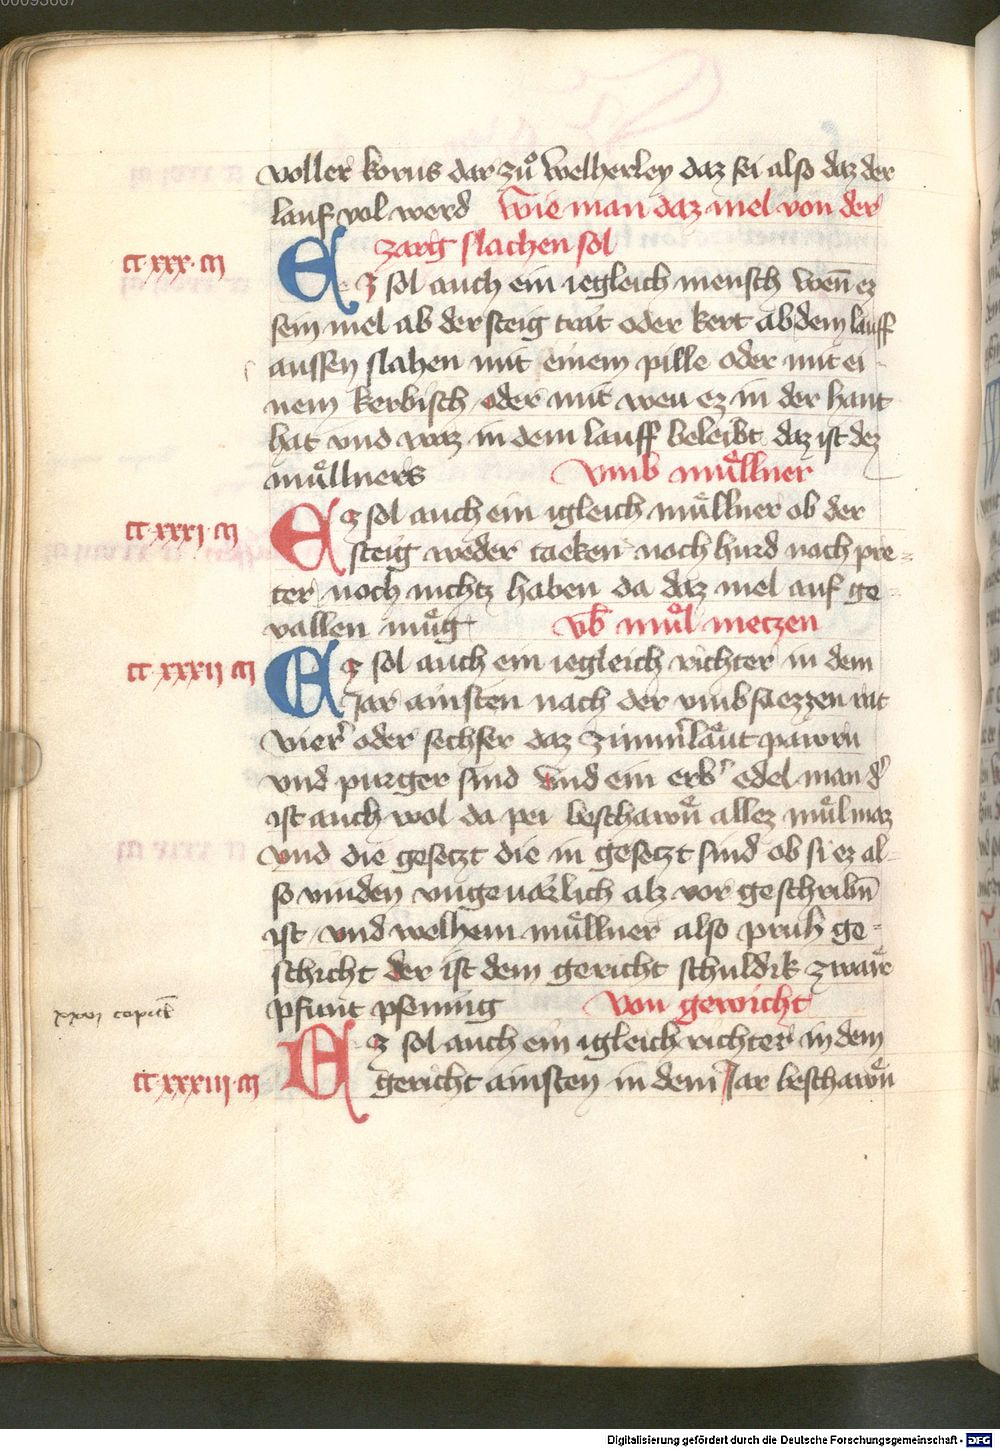 voller korns dar zuͦ welherley daz sei also daz der
lauf vol werd Wie man daz mel von der
zarg slachen sol
cc·xxx·
Ez sol auch ein iegleich mensch wen̄ ez
sein mel ab der steig trat oder kert ab dem lauff
aussen slahen mit einem pille oder mit ei
nem kerbisch oder mit weu ez in der hant
hat vnd waz in dem lauff beleibt daz ist dez
muͤllners vmb muͤllner
cc·xxxi·
Ez sol auch ein igleich muͤllner ob der
steig weder taeken noch hurd noch pre=
ter noch nichtz haben da daz mel auf ge=
vallen muͤg vb̄ muͤl meczen
cc·xxxii
Ez sol auch ein iegleich richter in dem
Jar ainsten nach der vmbsaezzen rat
vier oder sechser daz zim̄erlaͤut pawrn
vnd purger sind vnd ein erb̾ edel man d̾
ist auch wol da pei beschawn̄ allez muͤlmaz
vnd die gesetzt die in gesetzt sind ob si ez al-
so vinden vngeuaͤrlich alz vor geschribn̄
ist vnd welhem muͤllner also pruh ge=
schicht der ist dem gericht schuldik zwaͤr
pfunt pfening Von gewicht
xxxi capitl̄
cc·xxxiii·
Ez sol auch ein igleich richter in dem
gericht ainsten in dem Jar beschawn̄
00093667
Digitalisierung gefördert durch die Deutsche Forschungsgemeinschaft - DFG